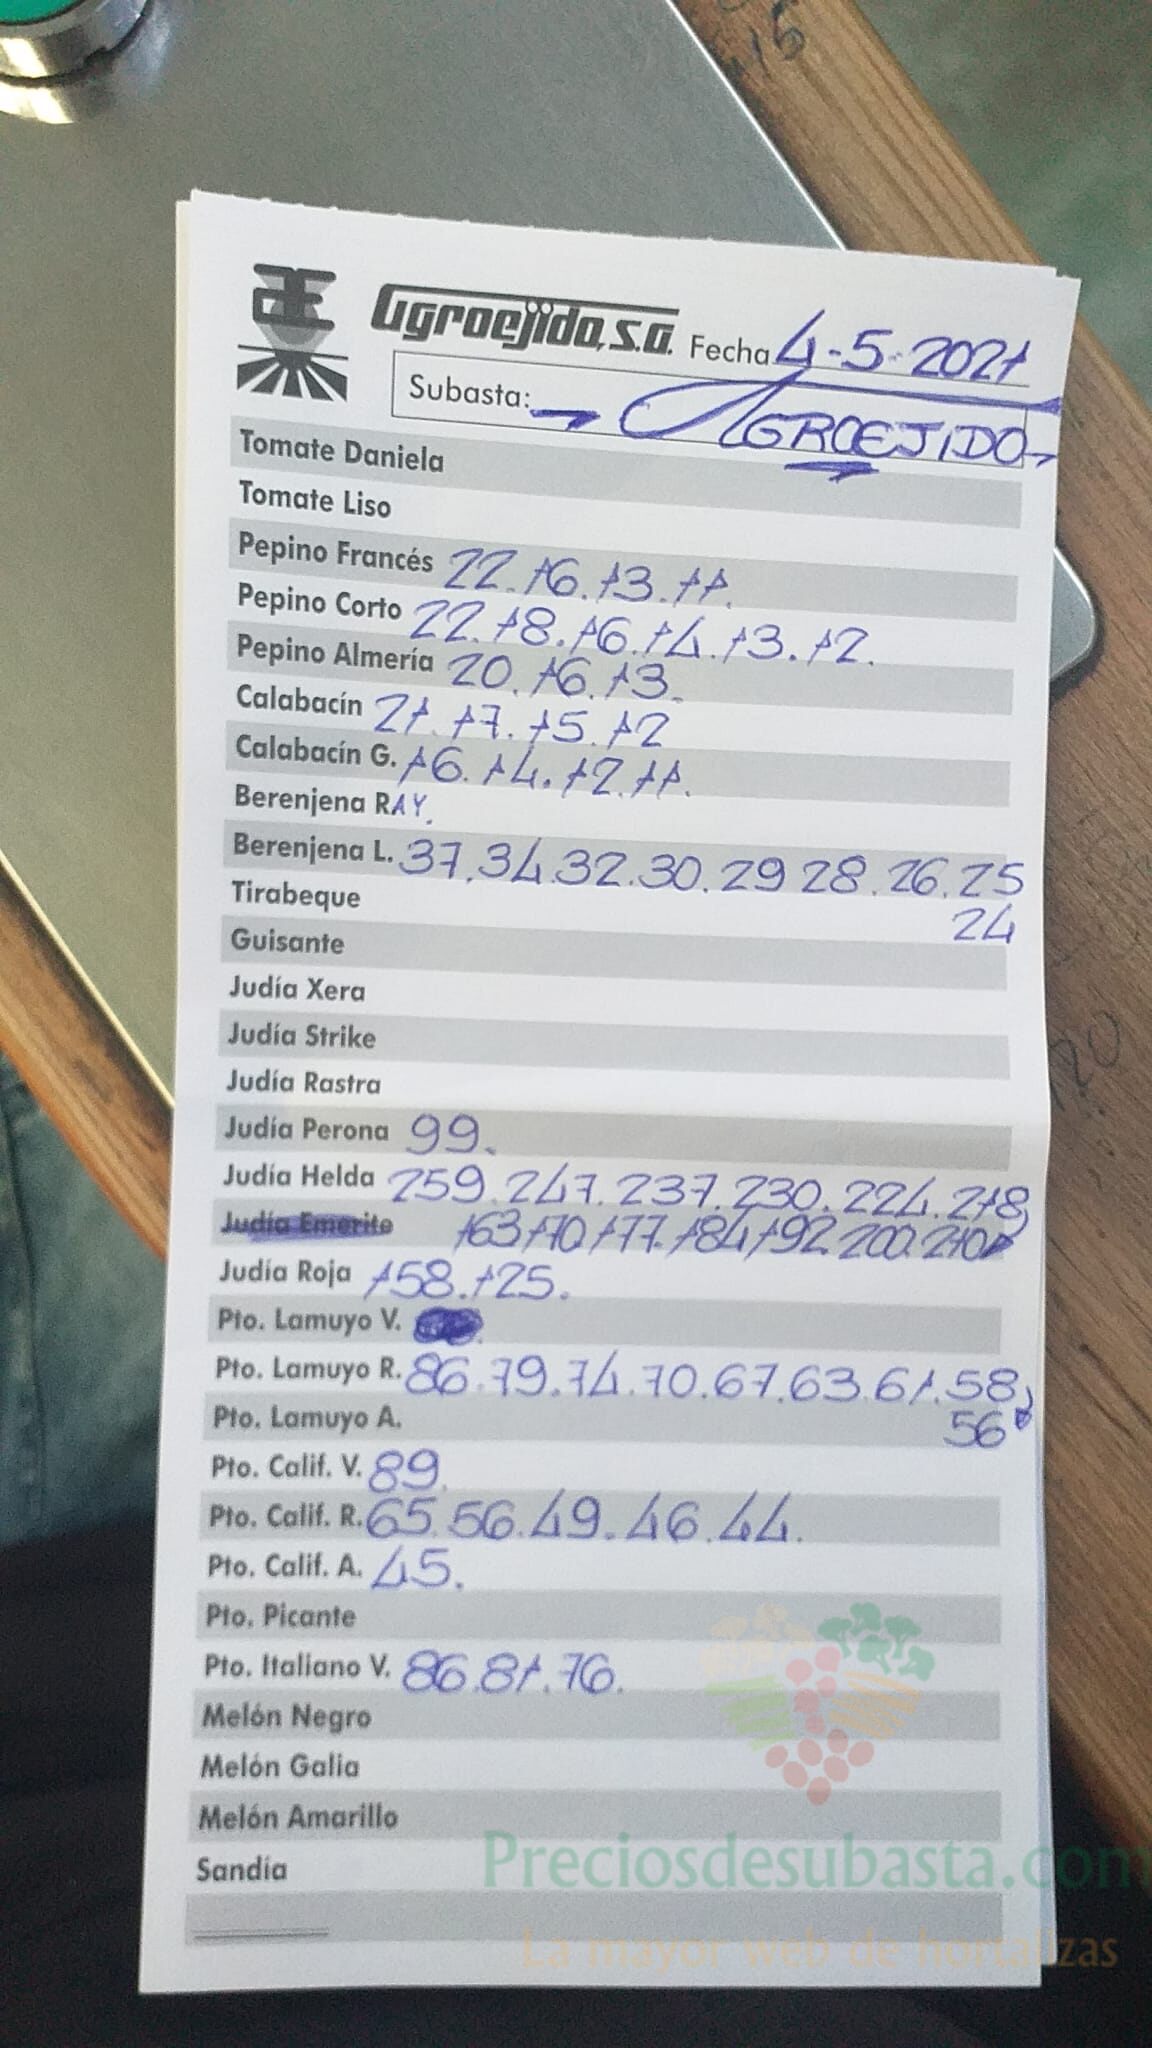 agroejido, s.a. Fecha 4-5-2021
Subasta: AGROEJIDO
Tomate Daniela
Tomate Liso
Pepino Francés 22.16.13.11.
Pepino Corto 22.18.16.14.13.12.
Pepino Almería 20.16.13.
Calabacín 21.17.15.12
Calabacín G. 16.14.12.11.
Berenjena RAY.
Berenjena L. 37.34.32.30.29 28.26.25
24
Tirabeque
Guisante
Judía Xera
Judía Strike
Judía Rastra
Judía Perona 99.
Judía Helda 259.247.237.230.224.218
Judía Emerite 163 170 177.184 192.200.210
Judía Roja 158.125.
Pto. Lamuyo V.
Pto. Lamuyo R. 86.79.74.70.67.63.61.58
56
Pto. Lamuyo A.
Pto. Calif. V. 89.
Pto. Calif. R. 65.56.49.46.44.
Pto. Calif. A. 45.
Pto. Picante
Pto. Italiano V. 86.81.76.
Melón Negro
Melón Galia
Melón Amarillo
Sandía
Preciosdesubasta.com
La mayor web de hortalizas